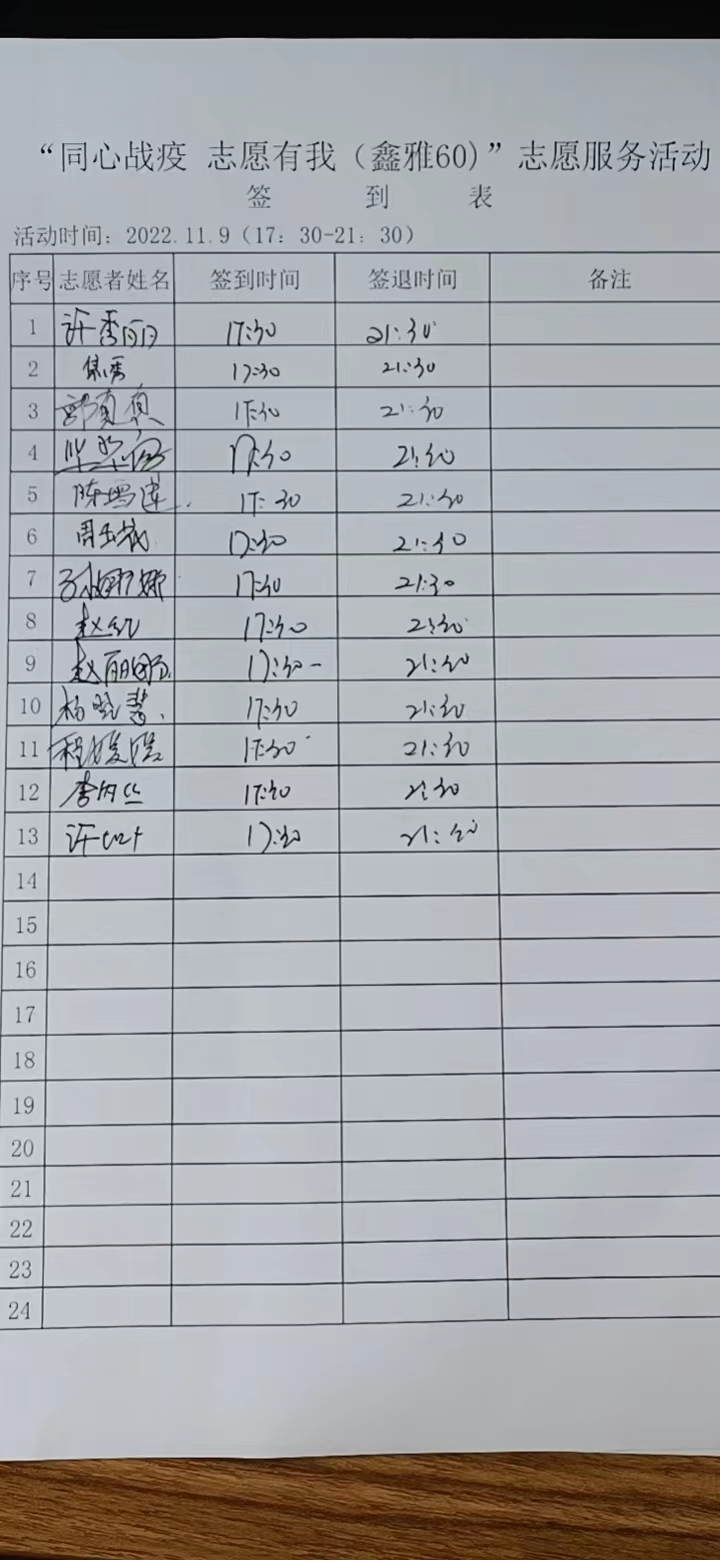 “同心战疫 志愿有我（鑫雅60）”志愿服务活动
签 到 表
活动时间：2022.11.9（17：30-21：30）
序号 志愿者姓名 签到时间 签退时间 备注
1 许秀丽 17:30 21:30
2 17:30 21:30
3 17:30 21:30
4 17:30 21:30
5 陈雪莲 17:30 21:30
6 周玉 17:30 21:30
7 孙娜娜 17:30 21:30
8 赵红 17:30 21:30
9 赵丽娜 17:30 21:30
10 杨晓慧 17:30 21:30
11 程媛媛 17:30 21:30
12 李 17:30 21:30
13 许 17:30 21:30
14
15
16
17
18
19
20
21
22
23
24